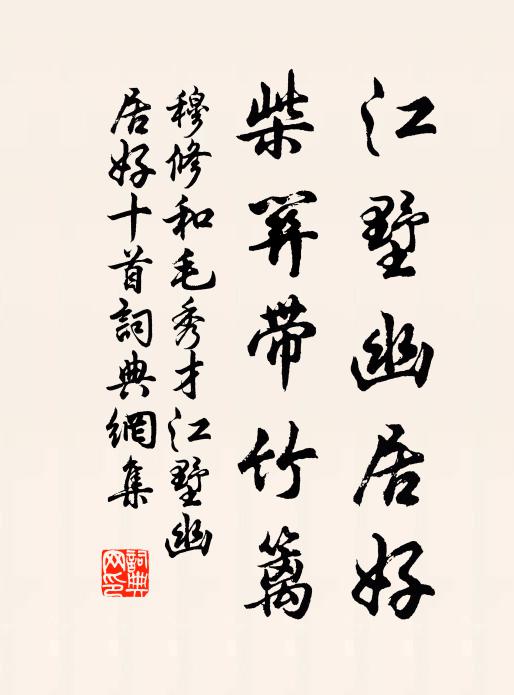 江墅幽居好
柴關帶竹籬
穆修和毛秀才江墅幽
居好十首詞典網集
詞典
网印